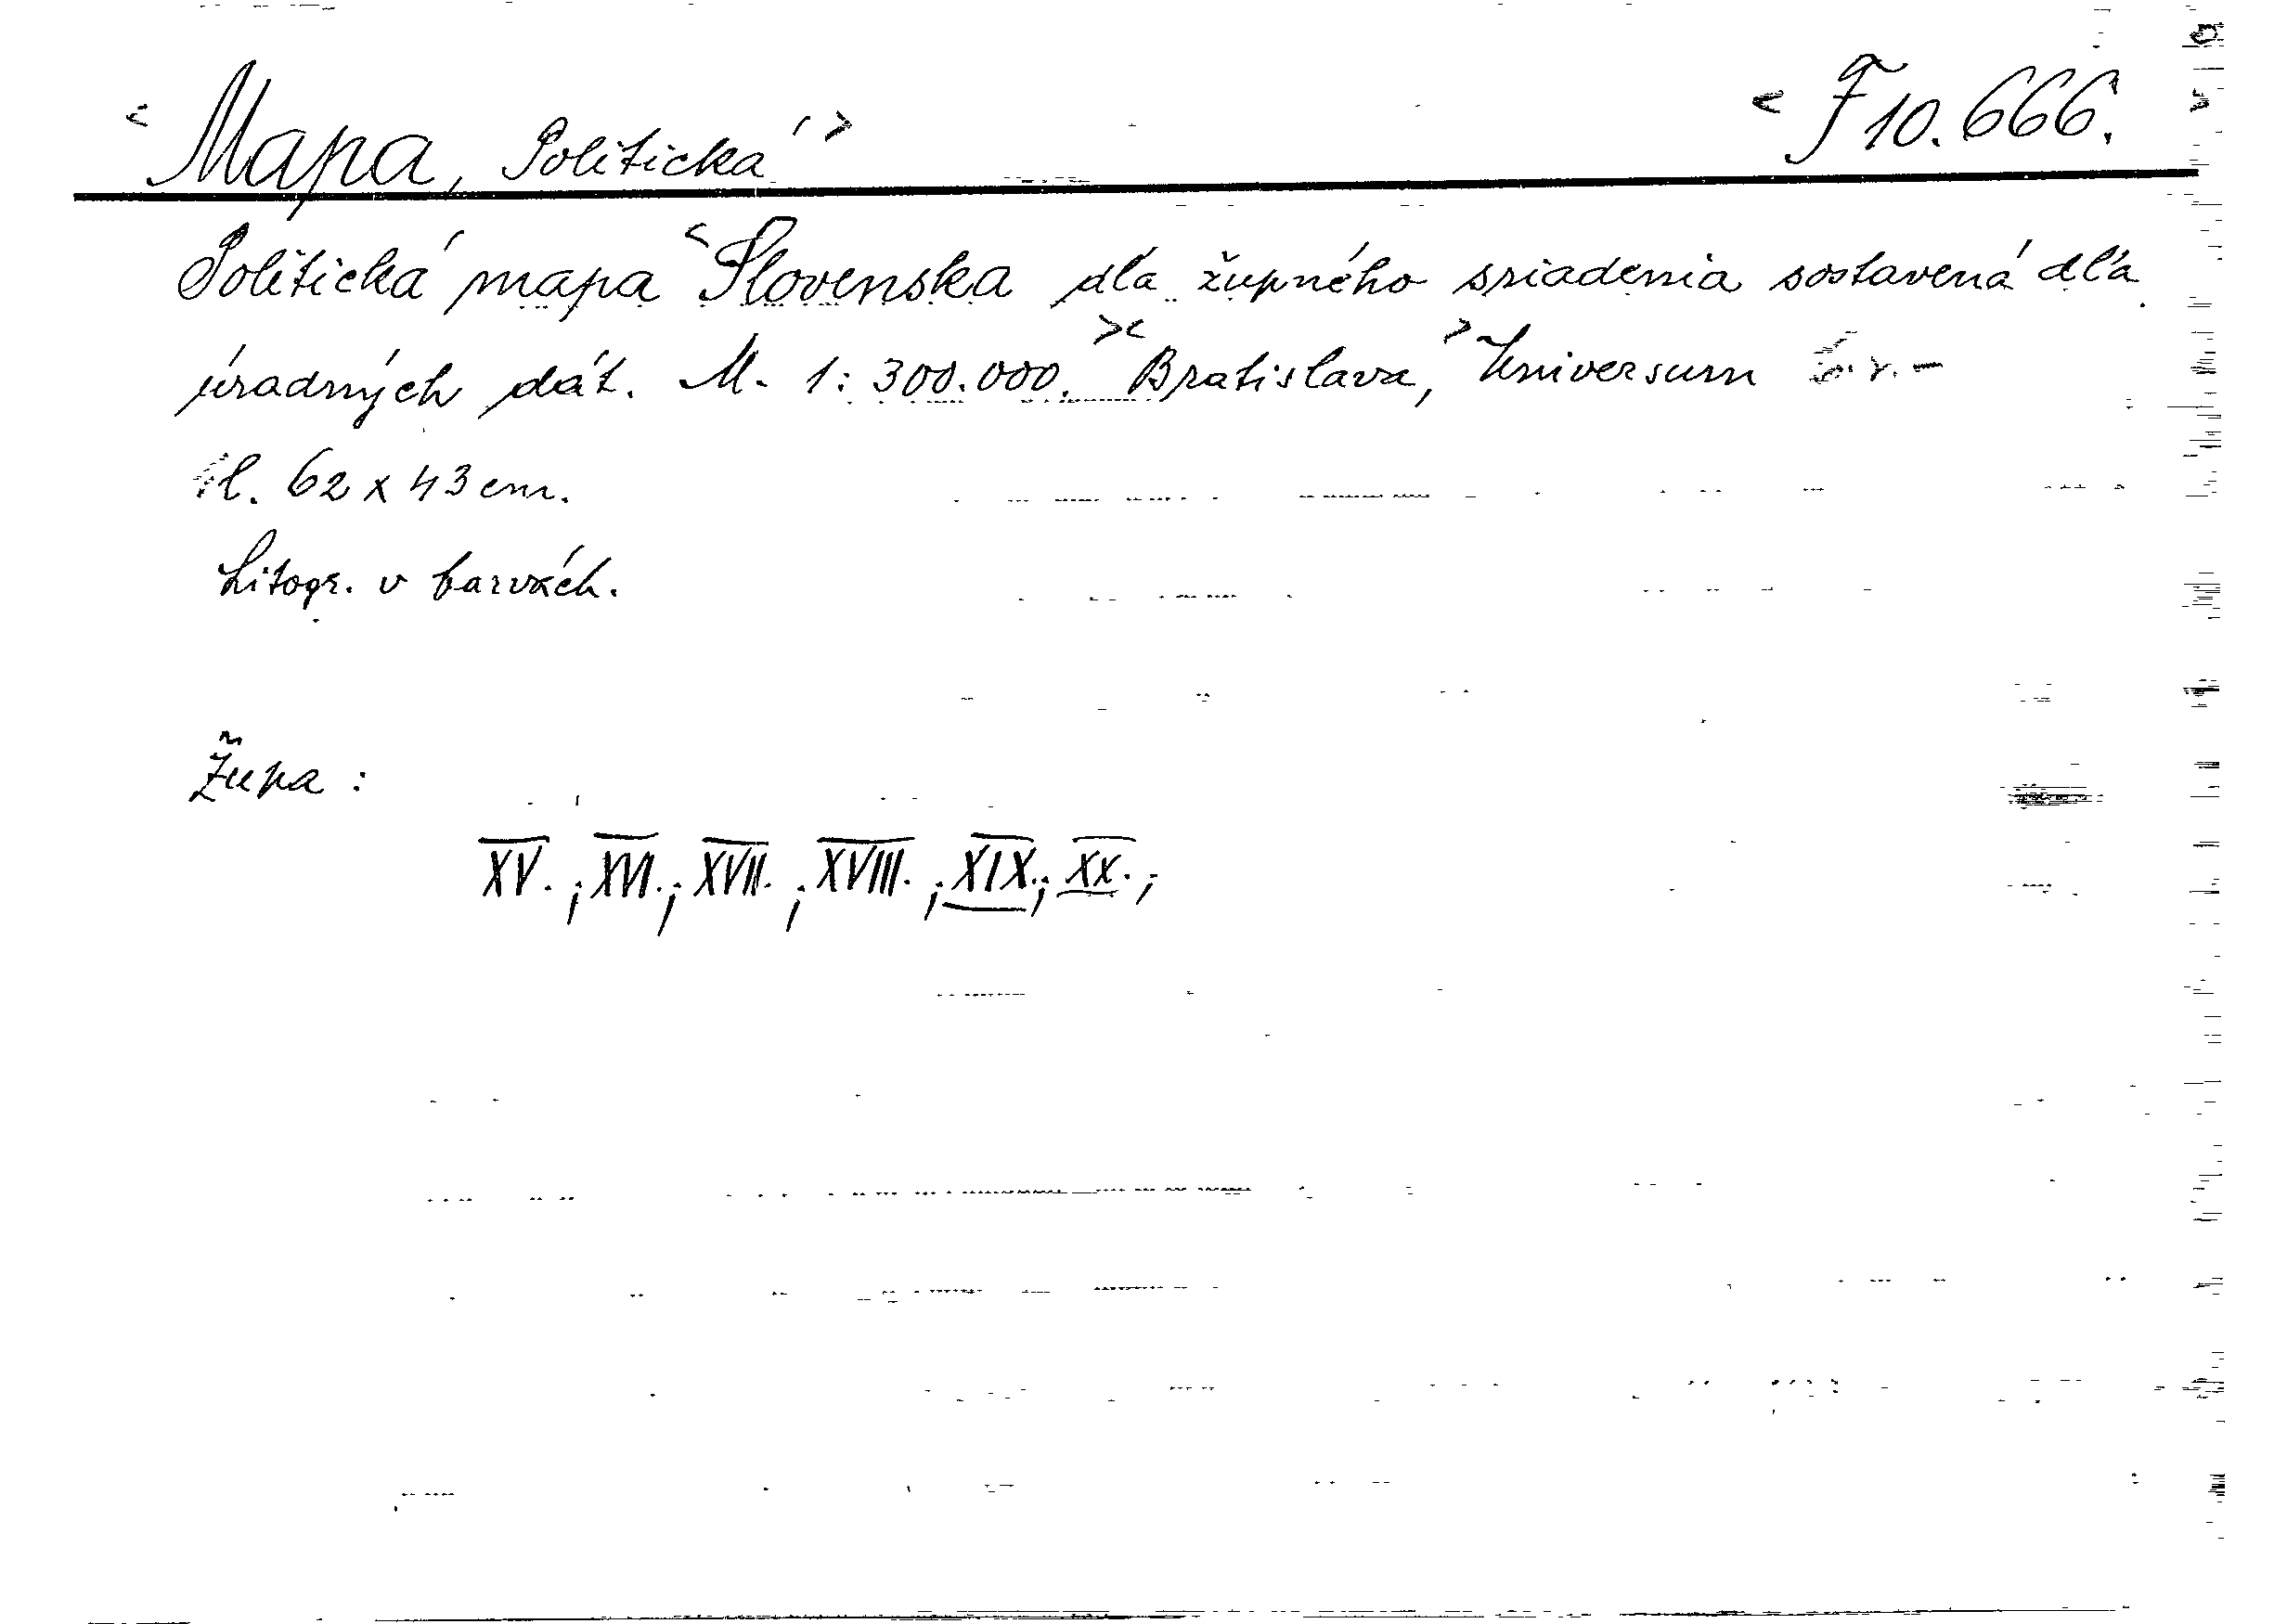 <Mapa, Politická> <F 10.666.>
Politická mapa <Slovenska dľa župného sriadenia sostavená dľa
úradných dát. M. 1:300.000. ><Bratislava,> Universum b.r.-
l. 62 x 43 cm.
Litogr. v barvách.
Župa:
XV.; XVI.; XVII.; XVIII.; XIX.; XX.;